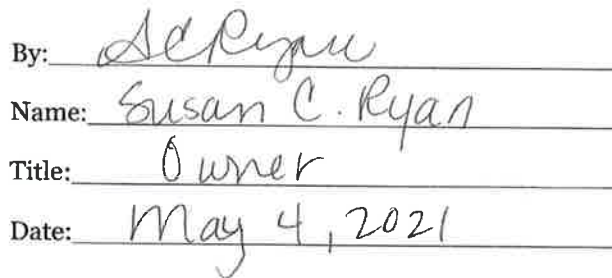 By: SCRyan
Name: Susan C. Ryan
Title: Owner
Date: May 4, 2021